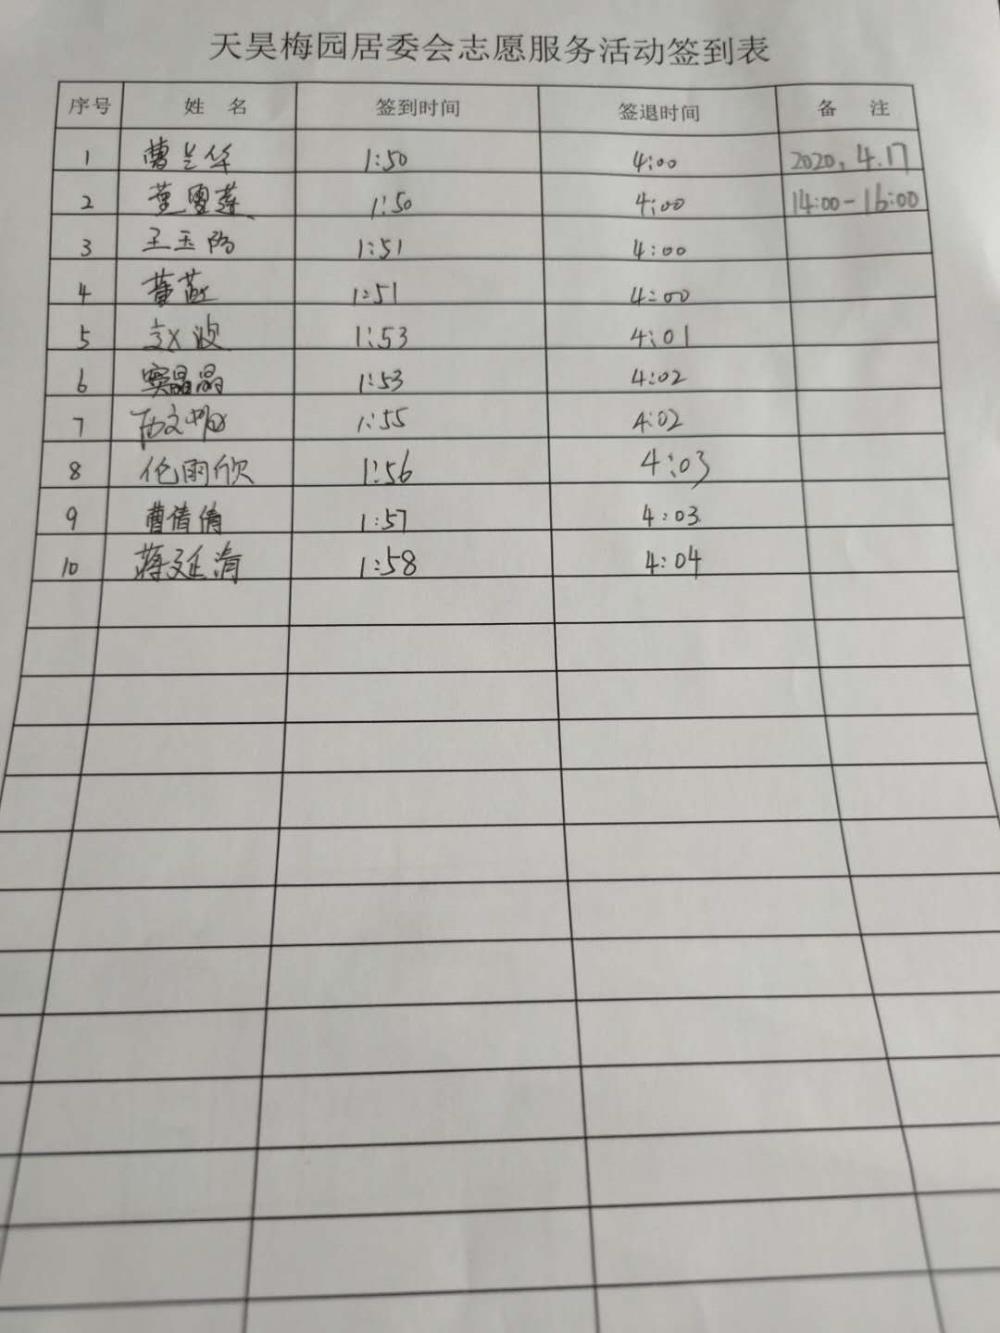 天昊梅园居委会志愿服务活动签到表
序号 姓 名 签到时间 签退时间 备 注
1 曹兰华 1:50 4:00 2020.4.17
2 1:50 4:00 14:00-16:00
3 王玉 1:51 4:00
4 董 1:51 4:00
5 赵波 1:53 4:01
6 窦晶晶 1:53 4:02
7 1:55 4:02
8 伦雨欣 1:56 4:03
9 曹倩倩 1:57 4:03
10 蒋延清 1:58 4:04